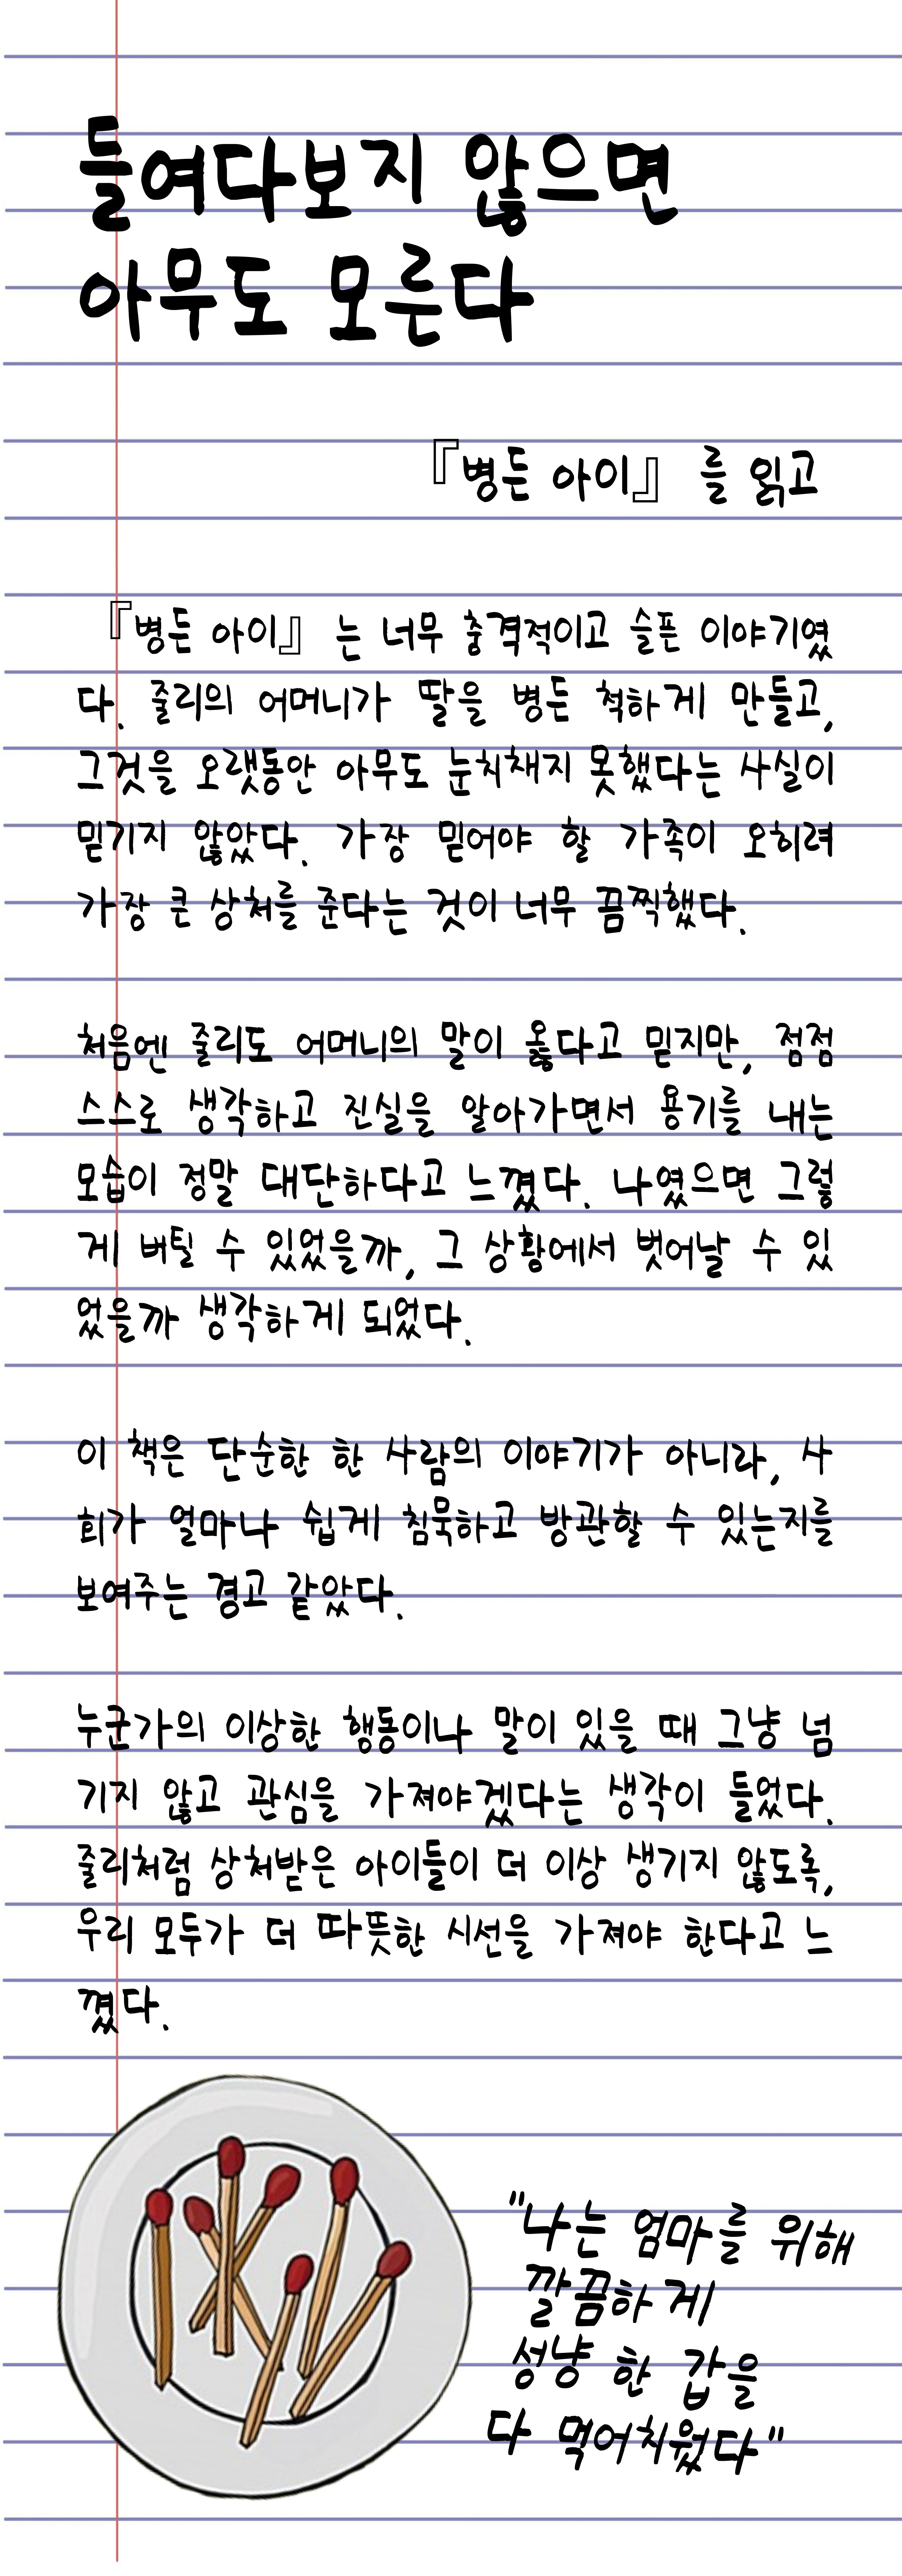 들여다보지 않으면
아무도 모른다
『병든 아이』 를 읽고
『병든 아이』 는 너무 충격적이고 슬픈 이야기였
다. 줄리의 어머니가 딸을 병든 척하게 만들고,
그것을 오랫동안 아무도 눈치채지 못했다는 사실이
믿기지 않았다. 가장 믿어야 할 가족이 오히려
가장 큰 상처를 준다는 것이 너무 끔찍했다.
처음엔 줄리도 어머니의 말이 옳다고 믿지만, 점점
스스로 생각하고 진실을 알아가면서 용기를 내는
모습이 정말 대단하다고 느꼈다. 나였으면 그렇
게 버틸 수 있었을까, 그 상황에서 벗어날 수 있
었을까 생각하게 되었다.
이 책은 단순한 한 사람의 이야기가 아니라, 사
회가 얼마나 쉽게 침묵하고 방관할 수 있는지를
보여주는 경고 같았다.
누군가의 이상한 행동이나 말이 있을 때 그냥 넘
기지 않고 관심을 가져야겠다는 생각이 들었다.
줄리처럼 상처받은 아이들이 더 이상 생기지 않도록,
우리 모두가 더 따뜻한 시선을 가져야 한다고 느
꼈다.
"나는 엄마를 위해
깔끔하게
성냥 한 갑을
다 먹어치웠다"